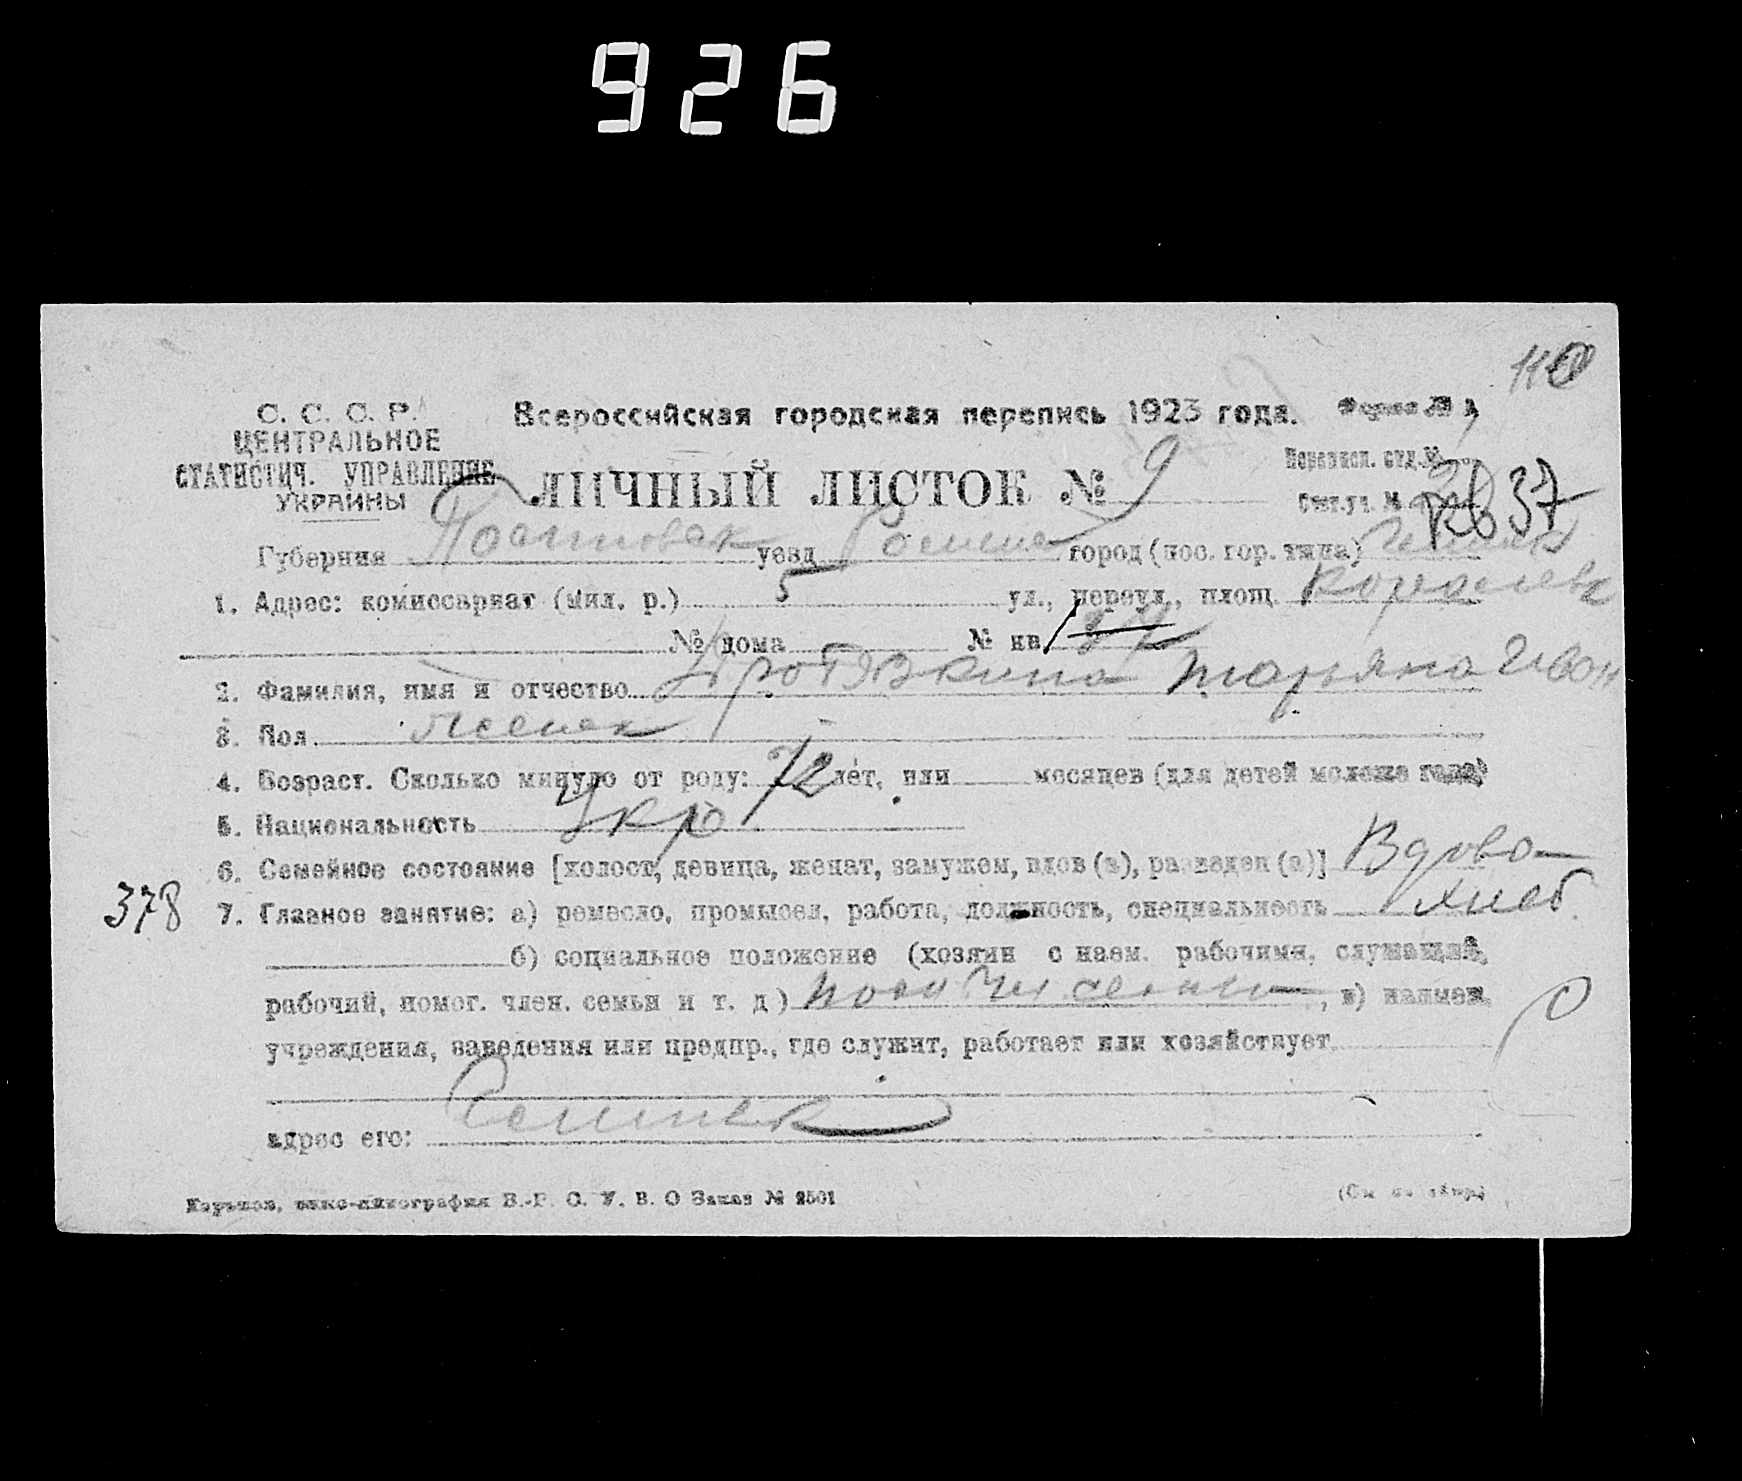 926
110
С. С. С. Р.
ЦЕНТРАЛЬНОЕ
СТАТИСТИЧ. УПРАВЛЕНИЕ
УКРАИНЫ
Всероссийская городская перепись 1923 года.
Форма №
ЛИЧНЫЙ ЛИСТОК № 9
Переписн. отд. №
Счет. уч. № 37
Губерния Полтовск уезд город (пос. гор. типа)
1. Адрес: комиссариат (мил. р.) 5 ул., переул., площ.
№ дома № кв.
2. Фамилия, имя и отчество Протявкина Татьяна Иван
3. Пол Женск
4. Возраст. Сколько минуло от роду: 72 лет, или месяцев (для детей моложе года)
5. Национальность Укр
6. Семейное состояние [холост, девица, женат, замужем, вдов (а), разведен (а)] Вдова
378
7. Главное занятие: а) ремесло, промысел, работа, должность, специальность хлеб
б) социальное положение (хозяин с наем. рабочими, служащий,
рабочий, помог. член. семьи и т. д.) , в) наимен.
учреждения, заведения или предпр., где служит, работает или хозяйствует
адрес его:
В.-Р. С. У. В. О Заказ № 2501